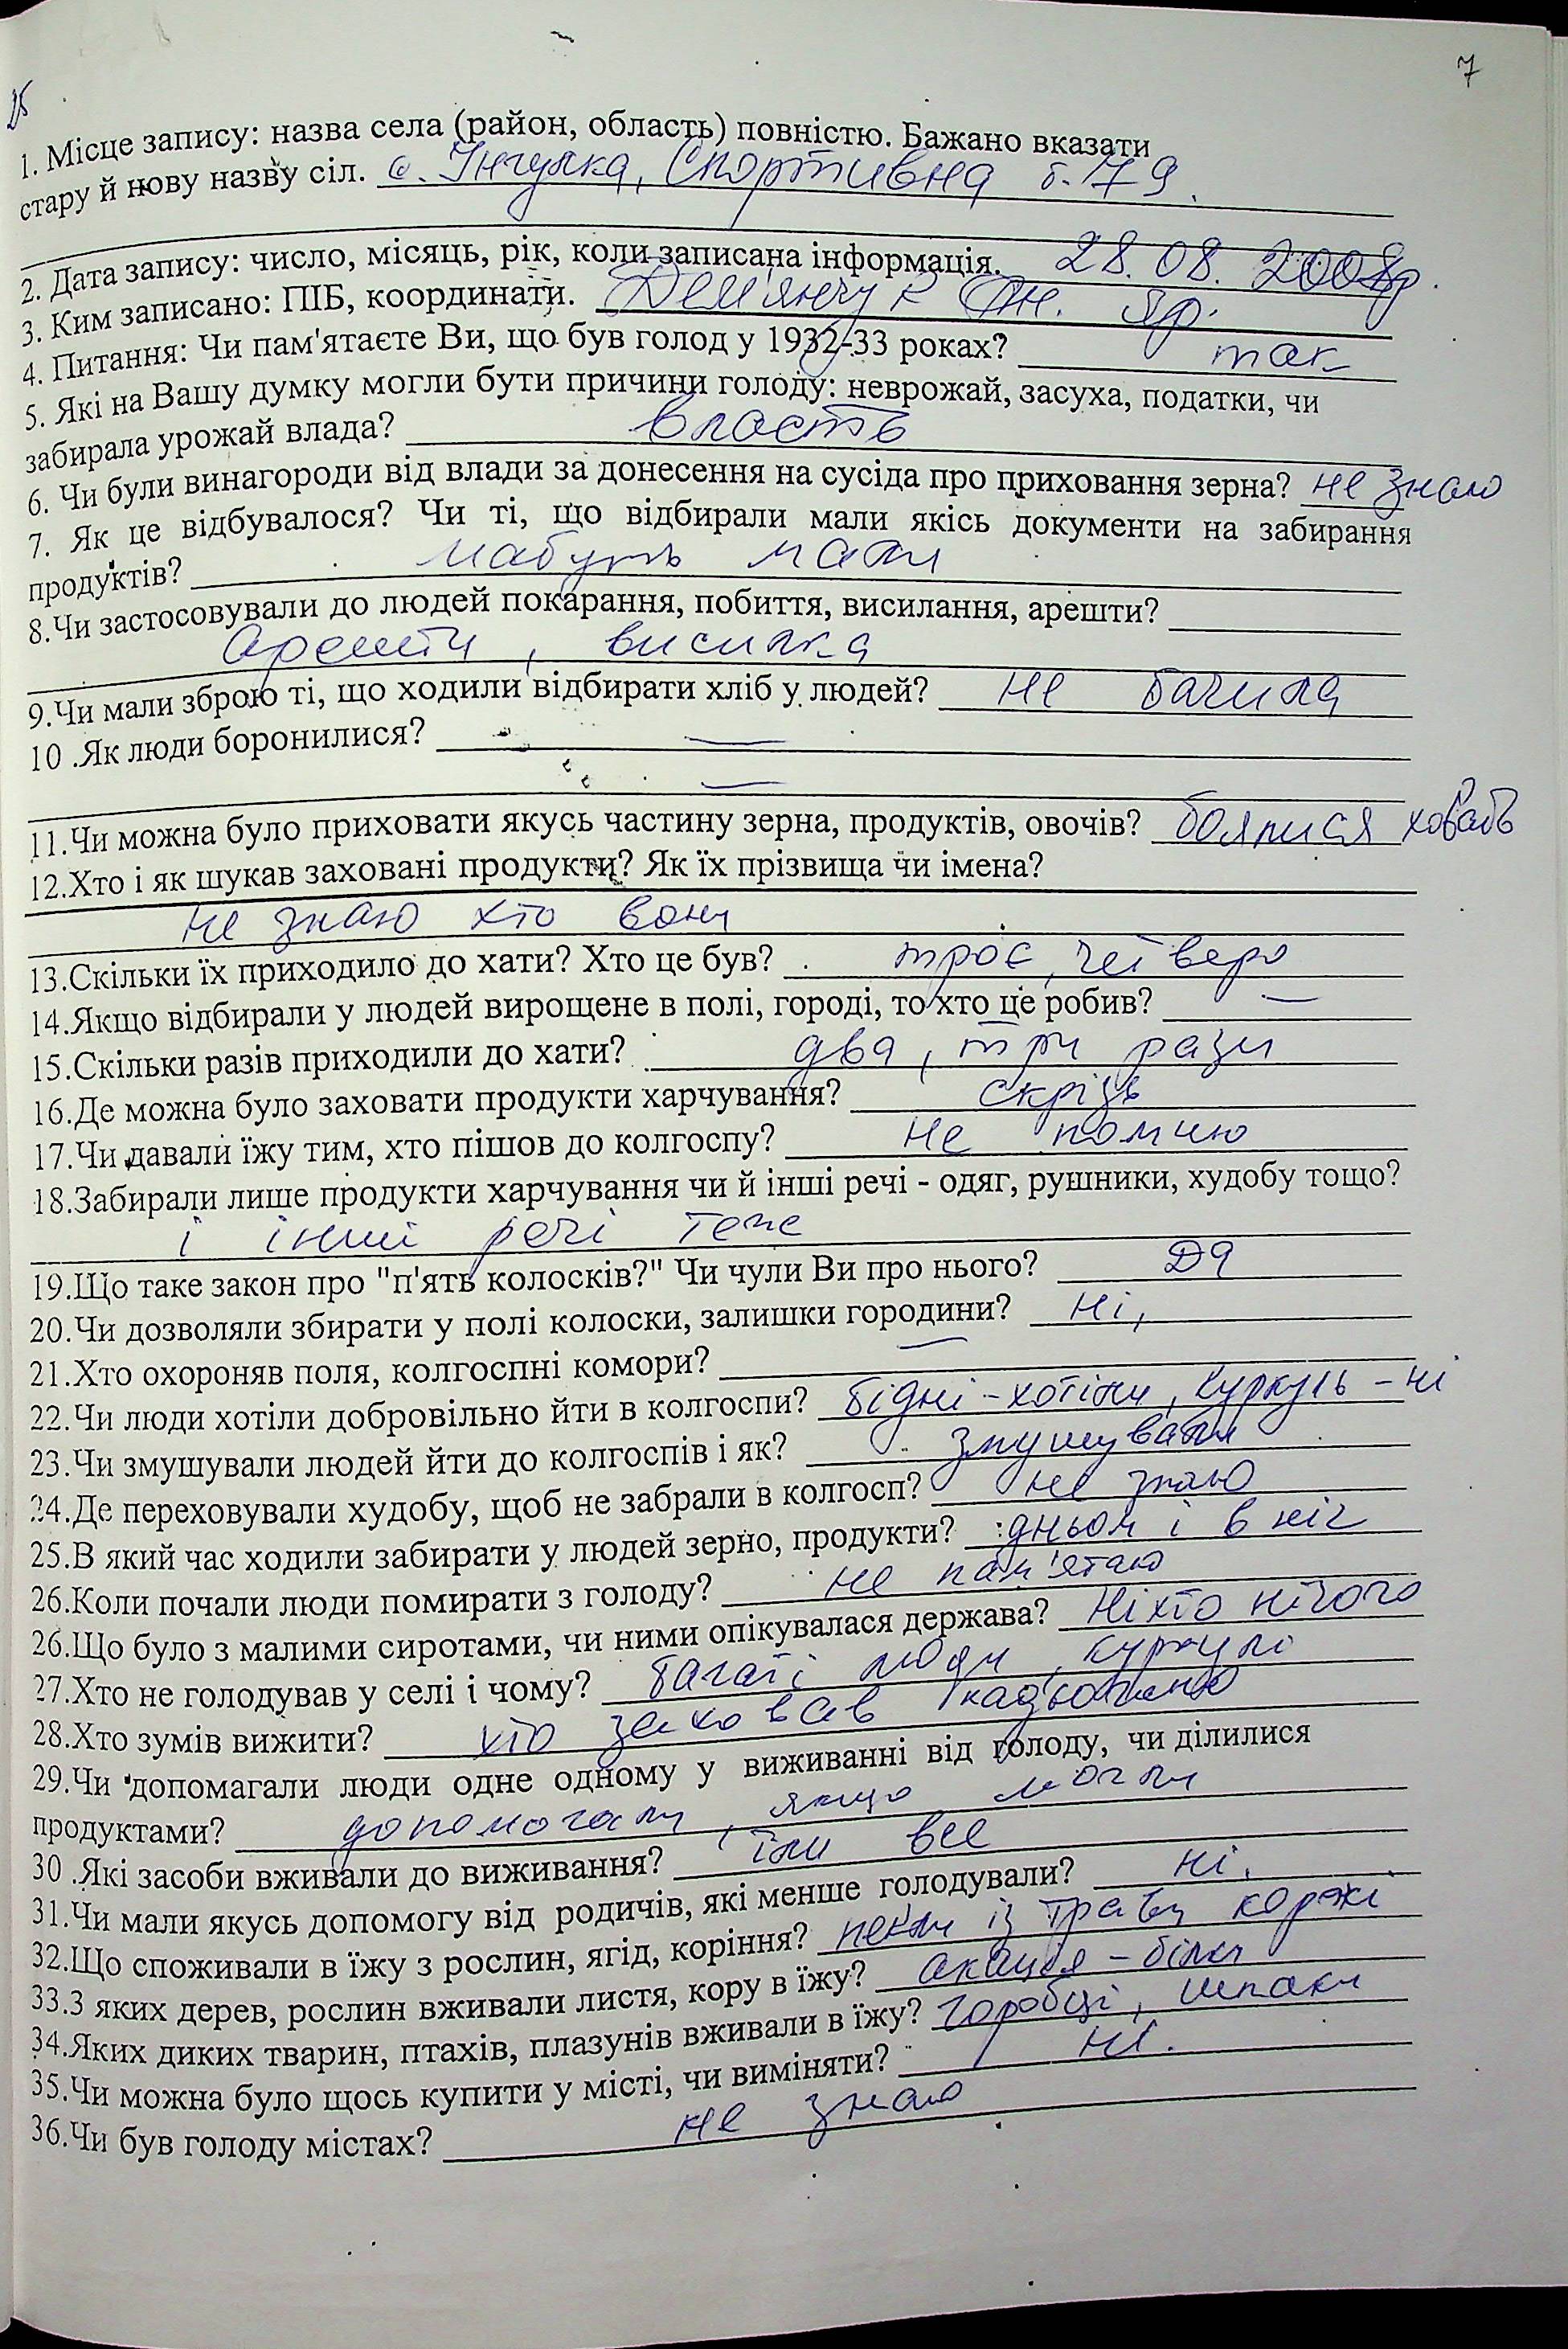 7
25
1. Місце запису: назва села (район, область) повністю. Бажано вказати
стару й нову назву сіл. с. Інгулка, Спортивна б. 79
2. Дата запису: число, місяць, рік, коли записана інформація. 28.08.2008р.
3. Ким записано: ПІБ, координати. Дем'янчук Ан. Яр.
4. Питання: Чи пам'ятаєте Ви, що був голод у 1932-33 роках? так
5. Які на Вашу думку могли бути причини голоду: неврожай, засуха, податки, чи
забирала урожай влада? власть
6. Чи були винагороди від влади за донесення на сусіда про приховання зерна? не знаю
7. Як це відбувалося? Чи ті, що відбирали мали якісь документи на забирання
продуктів? мабуть мали
8.Чи застосовували до людей покарання, побиття, висилання, арешти?
арешти, висилка
9.Чи мали зброю ті, що ходили відбирати хліб у людей? не бачила
10 .Як люди боронилися? —
—
11.Чи можна було приховати якусь частину зерна, продуктів, овочів? боялися ховать
12.Хто і як шукав заховані продукти? Як їх прізвища чи імена?
не знаю хто вони
13.Скільки їх приходило до хати? Хто це був? троє, четверо
14.Якщо відбирали у людей вирощене в полі, городі, то хто це робив? —
15.Скільки разів приходили до хати? два, три рази
16.Де можна було заховати продукти харчування? скрізь
17.Чи давали їжу тим, хто пішов до колгоспу? не помню
18.Забирали лише продукти харчування чи й інші речі - одяг, рушники, худобу тощо?
і інші речі теже
19.Що таке закон про "п'ять колосків?" Чи чули Ви про нього? Да
20.Чи дозволяли збирати у полі колоски, залишки городини? Ні,
21.Хто охороняв поля, колгоспні комори? —
22.Чи люди хотіли добровільно йти в колгоспи? бідні - хотіли, куркуль - ні
23.Чи змушували людей йти до колгоспів і як? змушували
24.Де переховували худобу, щоб не забрали в колгосп? не знаю
25.В який час ходили забирати у людей зерно, продукти? дньом і в ніч
26.Коли почали люди помирати з голоду? не пам'ятаю
26.Що було з малими сиротами, чи ними опікувалася держава? Ніхто нічого
27.Хто не голодував у селі і чому? багаті люди, куркулі
28.Хто зумів вижити? хто заховав
29.Чи допомагали люди одне одному у виживанні від голоду, чи ділилися
продуктами? допомогали, якщо могли
30 .Які засоби вживали до виживання? їли все
31.Чи мали якусь допомогу від родичів, які менше голодували? ні.
32.Що споживали в їжу з рослин, ягід, коріння? пекли із трави коржі
33.З яких дерев, рослин вживали листя, кору в їжу? акація - біла
34.Яких диких тварин, птахів, плазунів вживали в їжу? горобці, шпаки
35.Чи можна було щось купити у місті, чи виміняти? ні.
36.Чи був голоду містах? не знаю